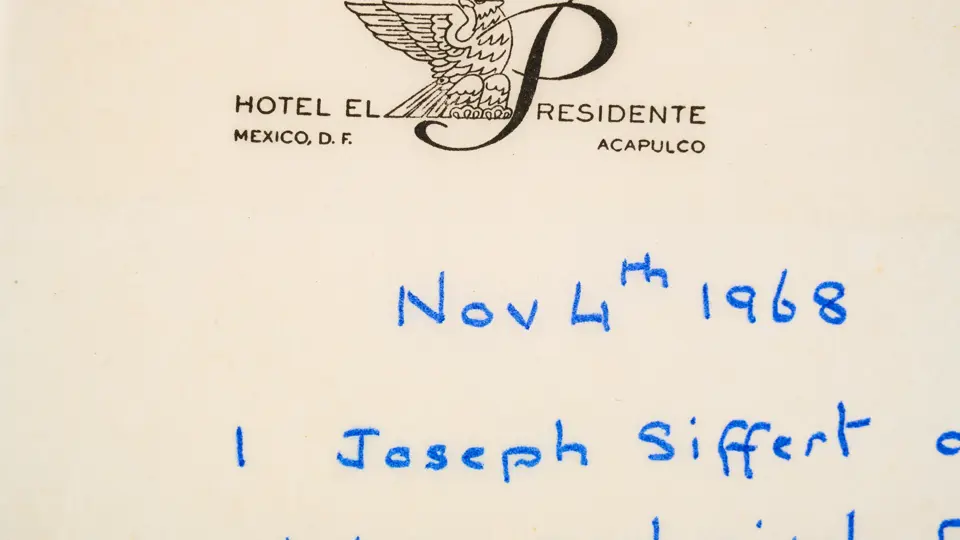 HOTEL EL PRESIDENTE
MEXICO, D. F. ACAPULCO
Nov 4th 1968
I Joseph Siffert